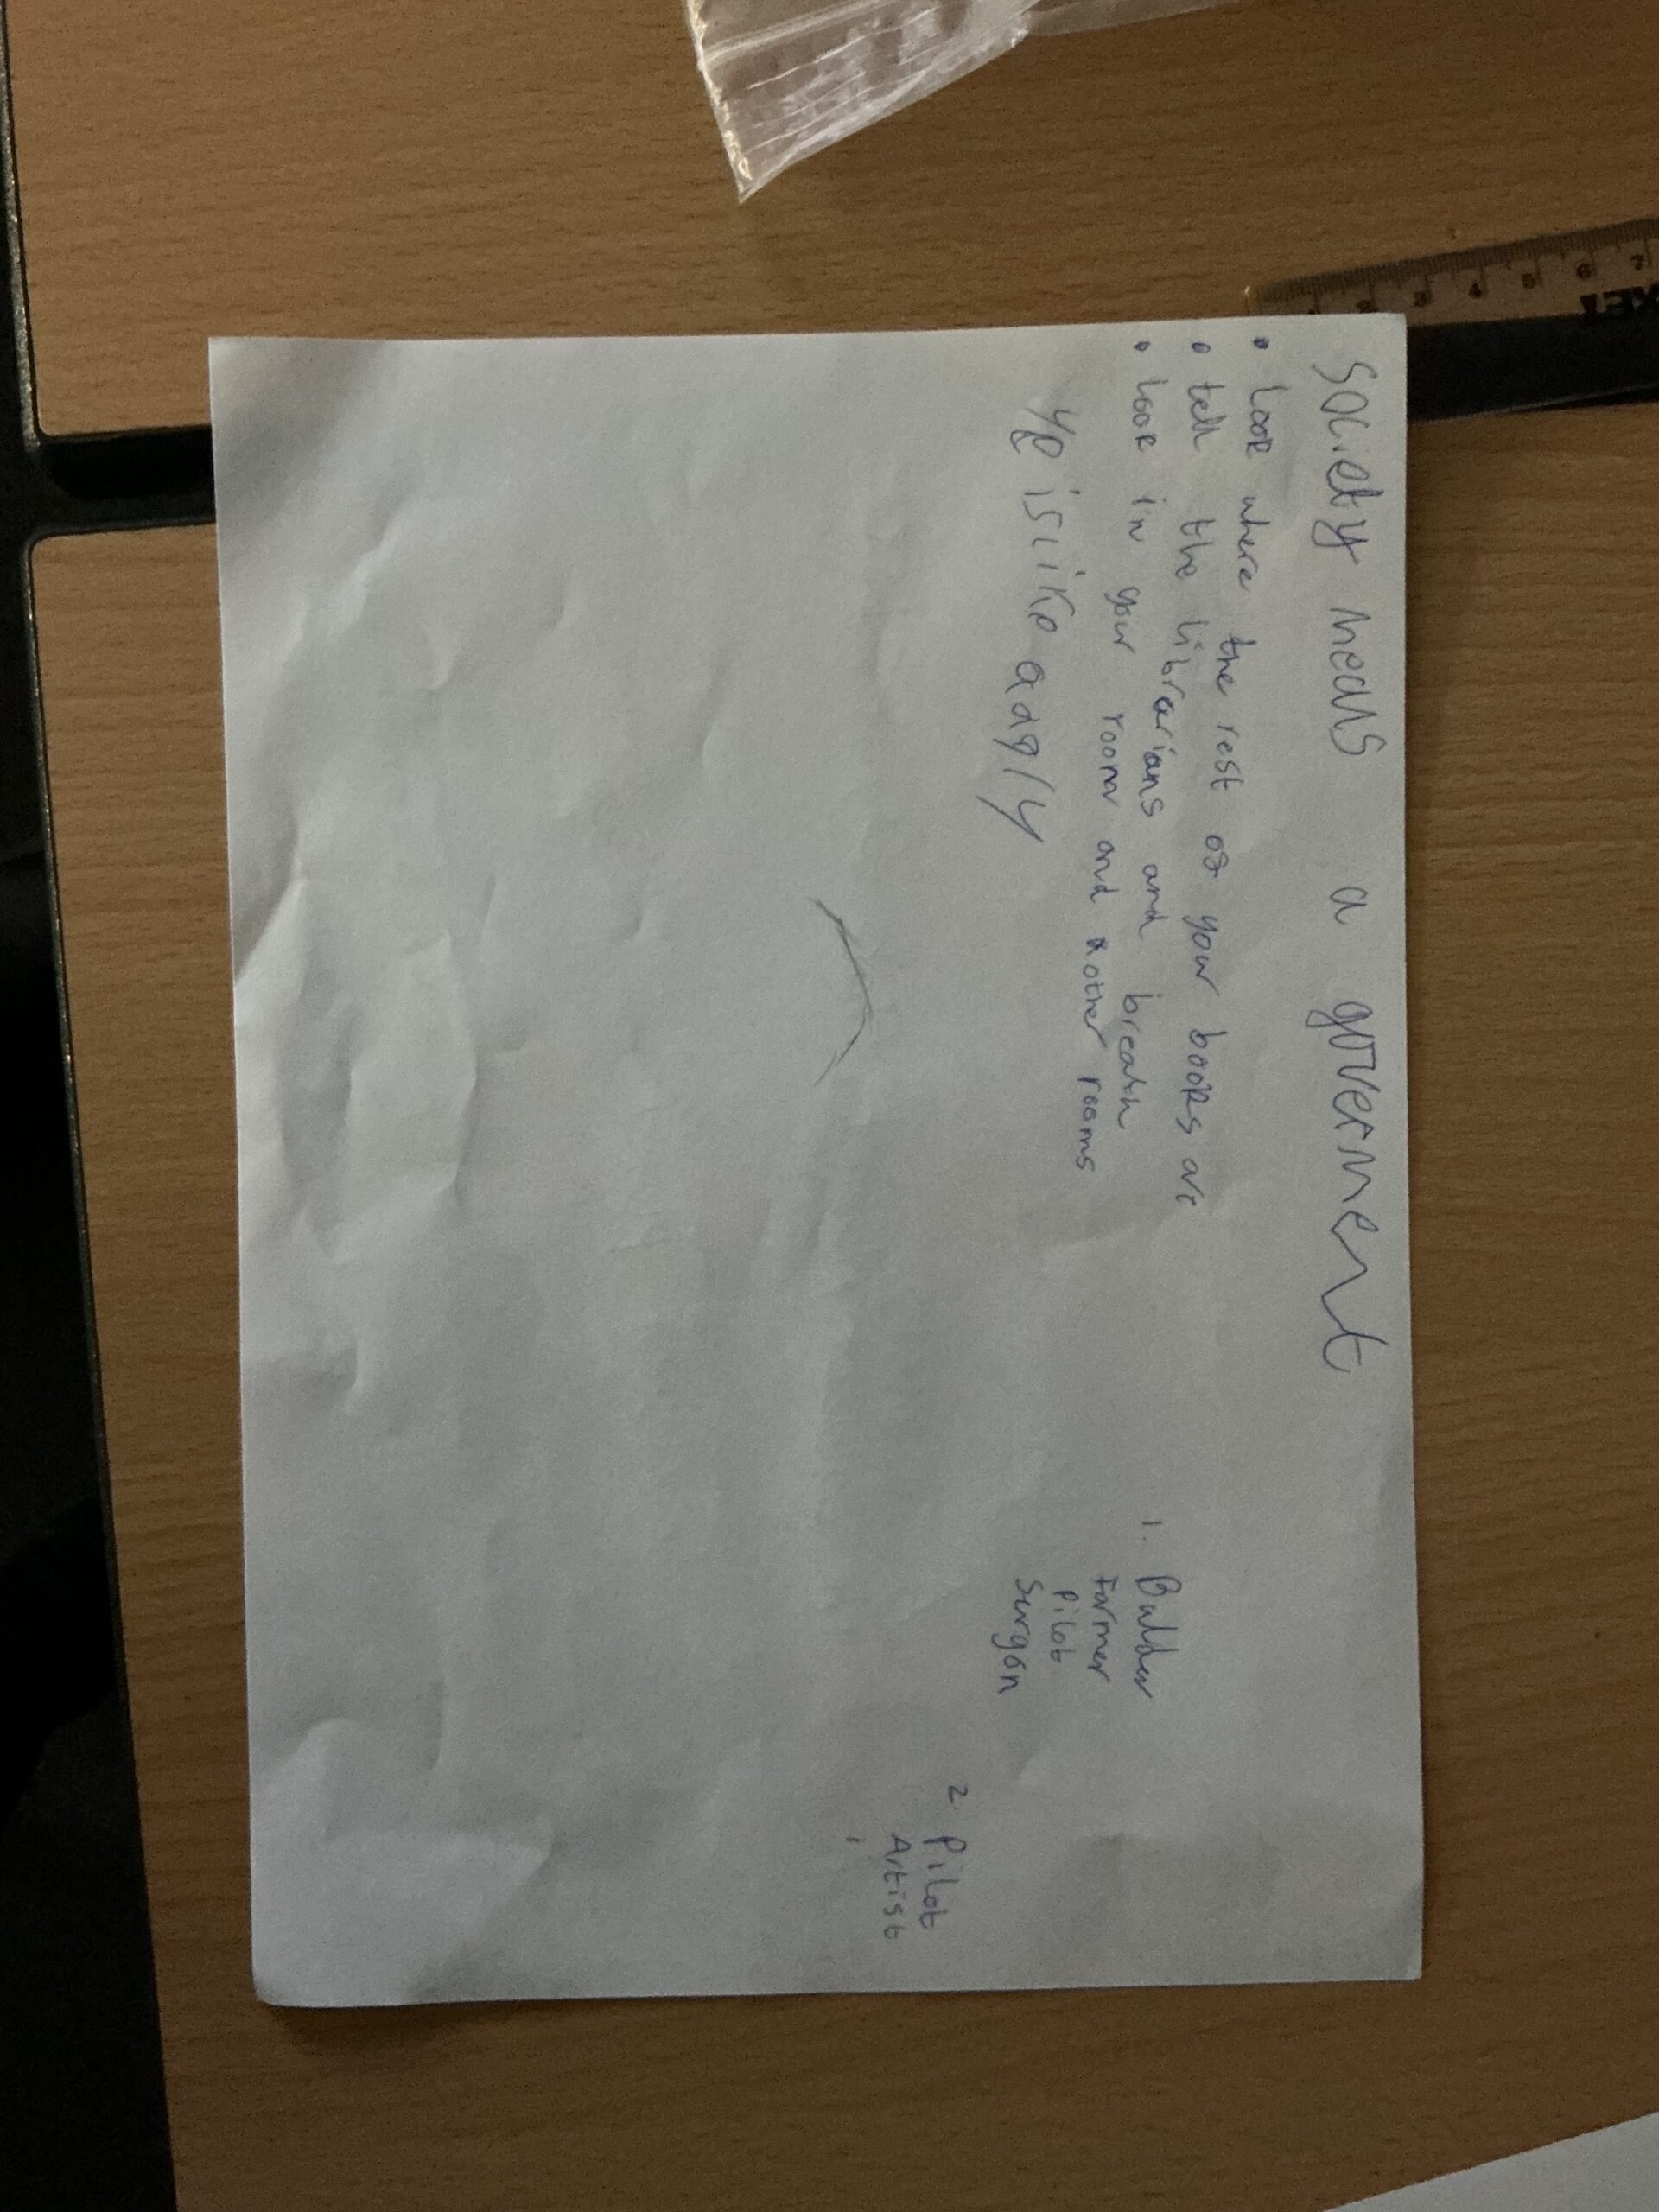 Society needs a goverment
• Look where the rest of your books are
• tell the librarians and breath
• look in your room and other rooms
1. Builder
Farmer
Pilot
Surgon
2. Pilot
Artist
2 3 4 5 6 7